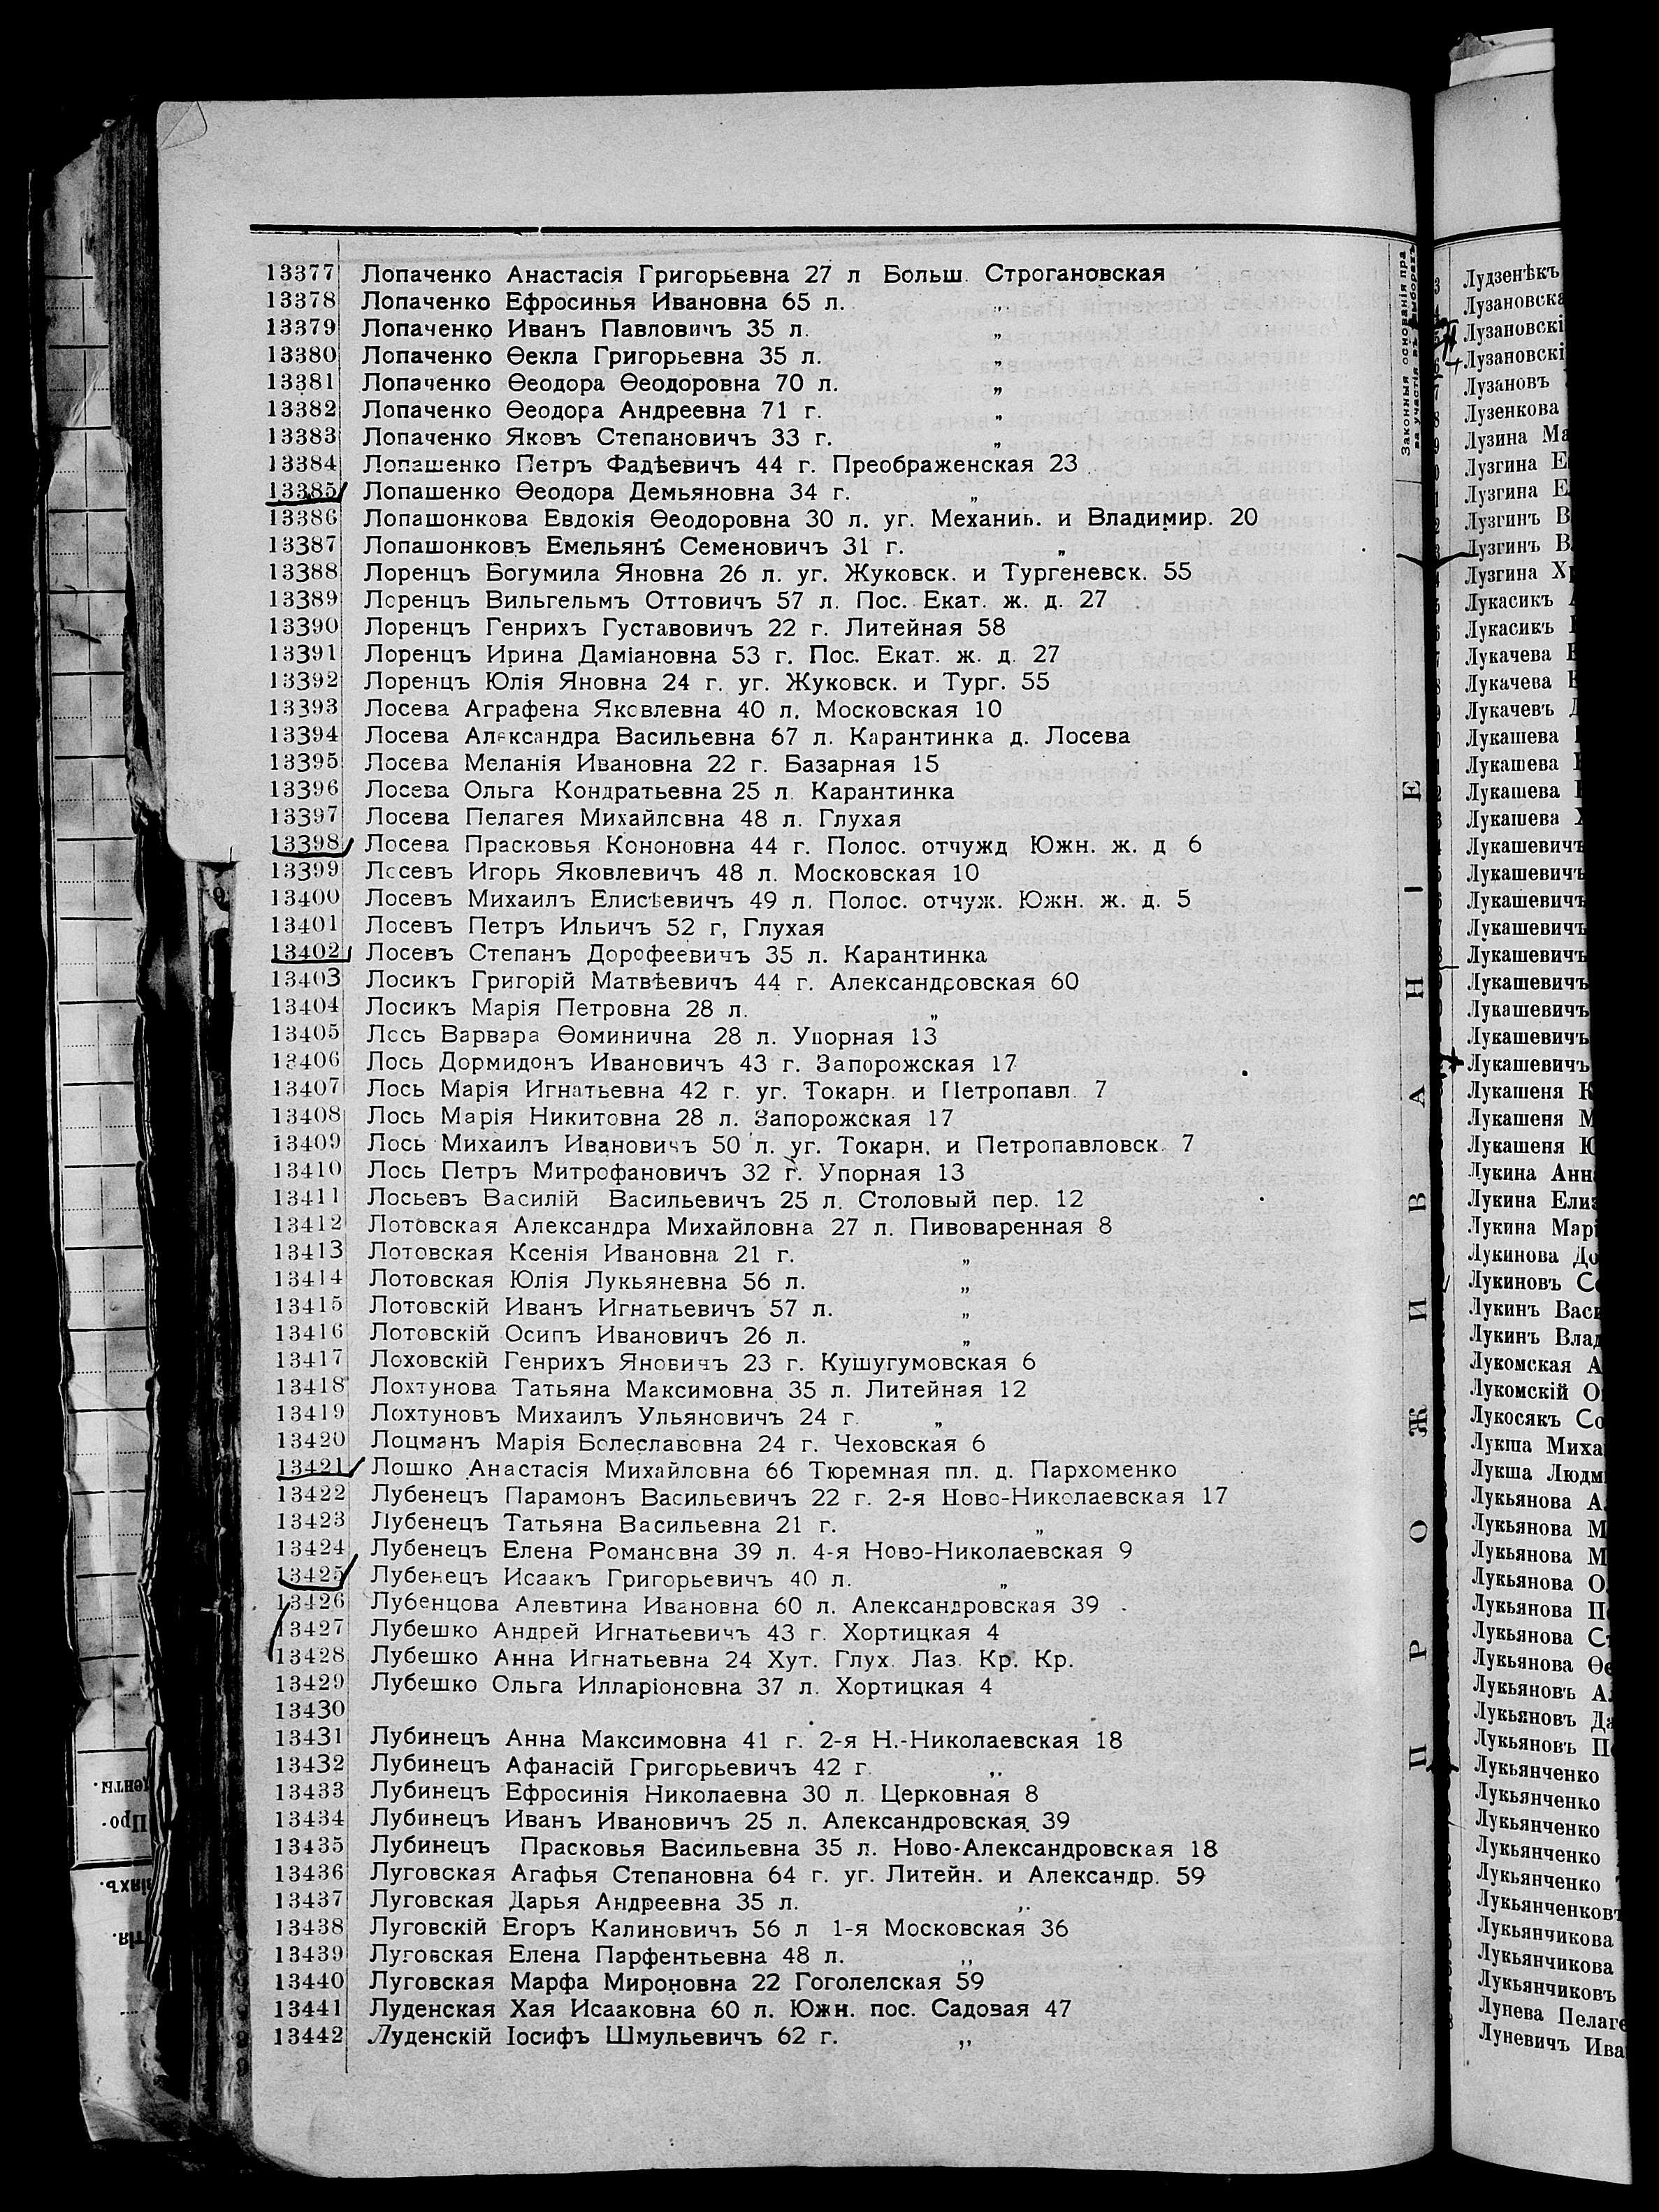 13377 Лопаченко Анастасія Григорьевна 27 л Больш. Строгановская
13378 Лопаченко Ефросинья Ивановна 65 л. „
13379 Лопаченко Иванъ Павловичъ 35 л. „
13380 Лопаченко Ѳекла Григорьевна 35 л. „
13381 Лопаченко Ѳеодора Ѳеодоровна 70 л. „
13382 Лопаченко Ѳеодора Андреевна 71 г. „
13383 Лопаченко Яковъ Степановичъ 33 г. „
13384 Лопашенко Петръ Фадѣевичъ 44 г. Преображенская 23
13385 Лопашенко Ѳеодора Демьяновна 34 г. „
13386 Лопашонкова Евдокія Ѳеодоровна 30 л. уг. Механич. и Владимир. 20
13387 Лопашонковъ Емельянъ Семеновичъ 31 г. „
13388 Лоренцъ Богумила Яновна 26 л. уг. Жуковск. и Тургеневск. 55
13389 Лоренцъ Вильгельмъ Оттовичъ 57 л. Пос. Екат. ж. д. 27
13390 Лоренцъ Генрихъ Густавовичъ 22 г. Литейная 58
13391 Лоренцъ Ирина Даміановна 53 г. Пос. Екат. ж. д. 27
13392 Лоренцъ Юлія Яновна 24 г. уг. Жуковск. и Тург. 55
13393 Лосева Аграфена Яковлевна 40 л. Московская 10
13394 Лосева Александра Васильевна 67 л. Карантинка д. Лосева
13395 Лосева Меланія Ивановна 22 г. Базарная 15
13396 Лосева Ольга Кондратьевна 25 л. Карантинка
13397 Лосева Пелагея Михайловна 48 л. Глухая
13398 Лосева Прасковья Кононовна 44 г. Полос. отчужд Южн. ж. д 6
13399 Лосевъ Игорь Яковлевичъ 48 л. Московская 10
13400 Лосевъ Михаилъ Елисѣевичъ 49 л. Полос. отчуж. Южн. ж. д. 5
13401 Лосевъ Петръ Ильичъ 52 г, Глухая
13402 Лосевъ Степанъ Дорофеевичъ 35 л. Карантинка
13403 Лосикъ Григорій Матвѣевичъ 44 г. Александровская 60
13404 Лосикъ Марія Петровна 28 л. „
13405 Лось Варвара Ѳоминична 28 л. Упорная 13
13406 Лось Дормидонъ Ивановичъ 43 г. Запорожская 17
13407 Лось Марія Игнатьевна 42 г. уг. Токарн. и Петропавл. 7
13408 Лось Марія Никитовна 28 л. Запорожская 17
13409 Лось Михаилъ Ивановичъ 50 л. уг. Токарн. и Петропавловск. 7
13410 Лось Петръ Митрофановичъ 32 г. Упорная 13
13411 Лосьевъ Василій Васильевичъ 25 л. Столовый пер. 12
13412 Лотовская Александра Михайловна 27 л. Пивоваренная 8
13413 Лотовская Ксенія Ивановна 21 г. „
13414 Лотовская Юлія Лукьяневна 56 л. „
13415 Лотовскій Иванъ Игнатьевичъ 57 л. „
13416 Лотовскій Осипъ Ивановичъ 26 л. „
13417 Лоховскій Генрихъ Яновичъ 23 г. Кушугумовская 6
13418 Лохтунова Татьяна Максимовна 35 л. Литейная 12
13419 Лохтуновъ Михаилъ Ульяновичъ 24 г. „
13420 Лоцманъ Марія Болеславовна 24 г. Чеховская 6
13421 Лошко Анастасія Михайловна 66 Тюремная пл. д. Пархоменко
13422 Лубенецъ Парамонъ Васильевичъ 22 г. 2-я Ново-Николаевская 17
13423 Лубенецъ Татьяна Васильевна 21 г. „
13424 Лубенецъ Елена Романовна 39 л. 4-я Ново-Николаевская 9
13425 Лубенецъ Исаакъ Григорьевичъ 40 л. „
13426 Лубенцова Алевтина Ивановна 60 л. Александровская 39
13427 Лубешко Андрей Игнатьевичъ 43 г. Хортицкая 4
13428 Лубешко Анна Игнатьевна 24 Хут. Глух. Лаз. Кр. Кр.
13429 Лубешко Ольга Илларіоновна 37 л. Хортицкая 4
13430
13431 Лубинецъ Анна Максимовна 41 г. 2-я Н.-Николаевская 18
13432 Лубинецъ Афанасій Григорьевичъ 42 г. „
13433 Лубинецъ Ефросинія Николаевна 30 л. Церковная 8
13434 Лубинецъ Иванъ Ивановичъ 25 л. Александровская 39
13435 Лубинецъ Прасковья Васильевна 35 л. Ново-Александровская 18
13436 Луговская Агафья Степановна 64 г. уг. Литейн. и Александр. 59
13437 Луговская Дарья Андреевна 35 л. „
13438 Луговскій Егоръ Калиновичъ 56 л 1-я Московская 36
13439 Луговская Елена Парфентьевна 48 л. „
13440 Луговская Марфа Мироновна 22 Гоголелская 59
13441 Луденская Хая Исааковна 60 л. Южн. пос. Садовая 47
13442 Луденскій Іосифъ Шмульевичъ 62 г. „
Законныя основанія пра
ва участія въ выборахъ
ПРОЖИВАНІЕ
Лудзенѣкъ
Лузановска
Лузановскі
Лузановскі
Лузановъ
Лузенкова
Лузина Ма
Лузгина Е
Лузгина Е
Лузгинъ В
Лузгинъ В
Лузгина Х
Лукасикъ
Лукасикъ
Лукачева
Лукачева
Лукачевъ
Лукашева
Лукашева
Лукашева
Лукашева
Лукашевичъ
Лукашевичъ
Лукашевичъ
Лукашевичъ
Лукашевичъ
Лукашевичъ
Лукашевичъ
Лукашевичъ
Лукашевичъ
Лукашеня К
Лукашеня М
Лукашеня Ю
Лукина Анн
Лукина Елиз
Лукина Марі
Лукинова До
Лукиновъ Се
Лукинъ Васи
Лукинъ Влад
Лукомская А
Лукомскій О
Лукосякъ Со
Лукша Миха
Лукша Людм
Лукьянова А
Лукьянова М
Лукьянова М
Лукьянова О
Лукьянова П
Лукьянова Ст
Лукьянова Ѳе
Лукьяновъ А
Лукьяновъ Да
Лукьяновъ П
Лукьянченко
Лукьянченко
Лукьянченко
Лукьянченко
Лукьянченко
Лукьянченковъ
Лукьянчикова
Лукьянчикова
Лукьянчиковъ
Лунева Пелаге
Луневичъ Ива